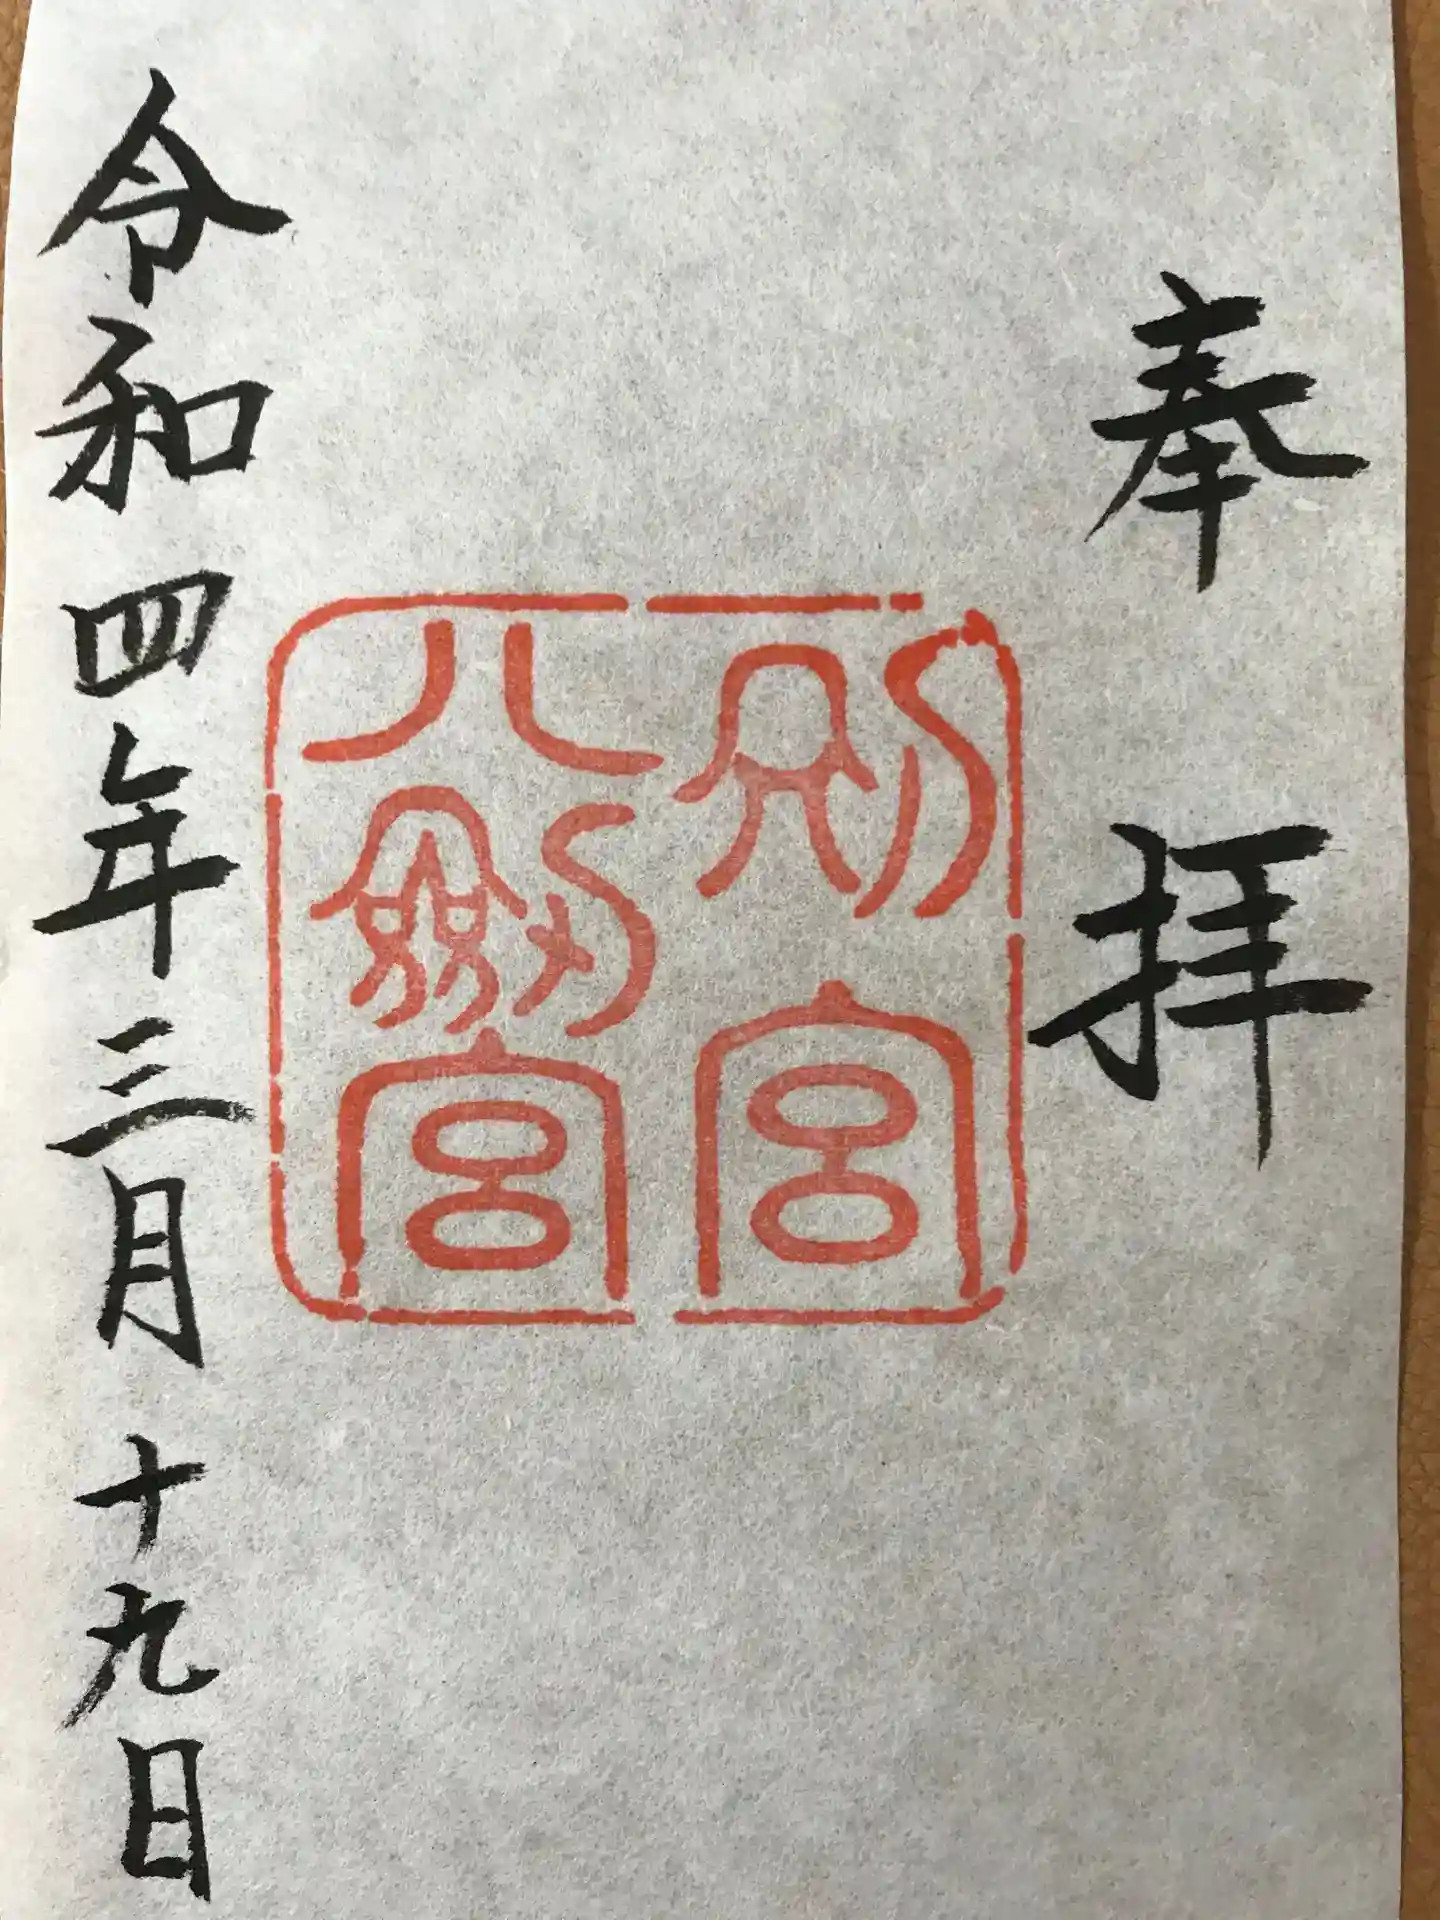 奉拝
別宮
八劒宮
令和四年三月十九日